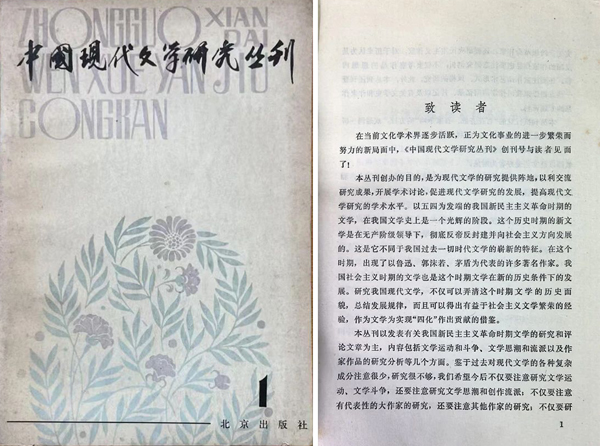 ZHONGGUO XIAN
DAI
中國現代文学研究丛刊
WEN XUE YAN JIU
CONGKAN
1
北京出版社
致读者
在当前文化学术界逐步活跃，正为文化事业的进一步繁荣而
努力的新局面中，《中国现代文学研究丛刊》创刊号与读者见面
了！
本丛刊创办的目的，是为现代文学的研究提供阵地，以利交流
研究成果，开展学术讨论，促进现代文学研究的发展，提高现代文
学研究的学术水平。以五四为发端的我国新民主主义革命时期的
文学，在我国文学史上是一个光辉的阶段。这个历史时期的新文
学是在无产阶级领导下，彻底反帝反封建并向社会主义方向发展
的。这是它不同于我国过去一切时代文学的崭新的特征。在这个
时期，出现了以鲁迅、郭沫若、茅盾为代表的许多著名作家。我
国社会主义时期的文学也是这个时期文学在新的历史条件下的发
展。研究我国现代文学，不仅可以弄清这个时期文学的历史面
貌，总结发展规律，而且可以得出有益于社会主义文学繁荣的经
验，作为文学为实现“四化”作出贡献的借鉴。
本丛刊以发表有关我国新民主主义革命时期文学的研究和评
论文章为主，内容包括文学运动和斗争、文学思潮和流派以及作
家作品的研究分析等几个方面。鉴于过去对现代文学的各种复杂
成分注意很少，研究很不够，我们希望今后不仅要注意研究文学运
动、文学斗争，还要注意研究文学思潮和创作流派；不仅要研究
有代表性的大作家的研究，还要注意其他作家的研究；不仅要研
1